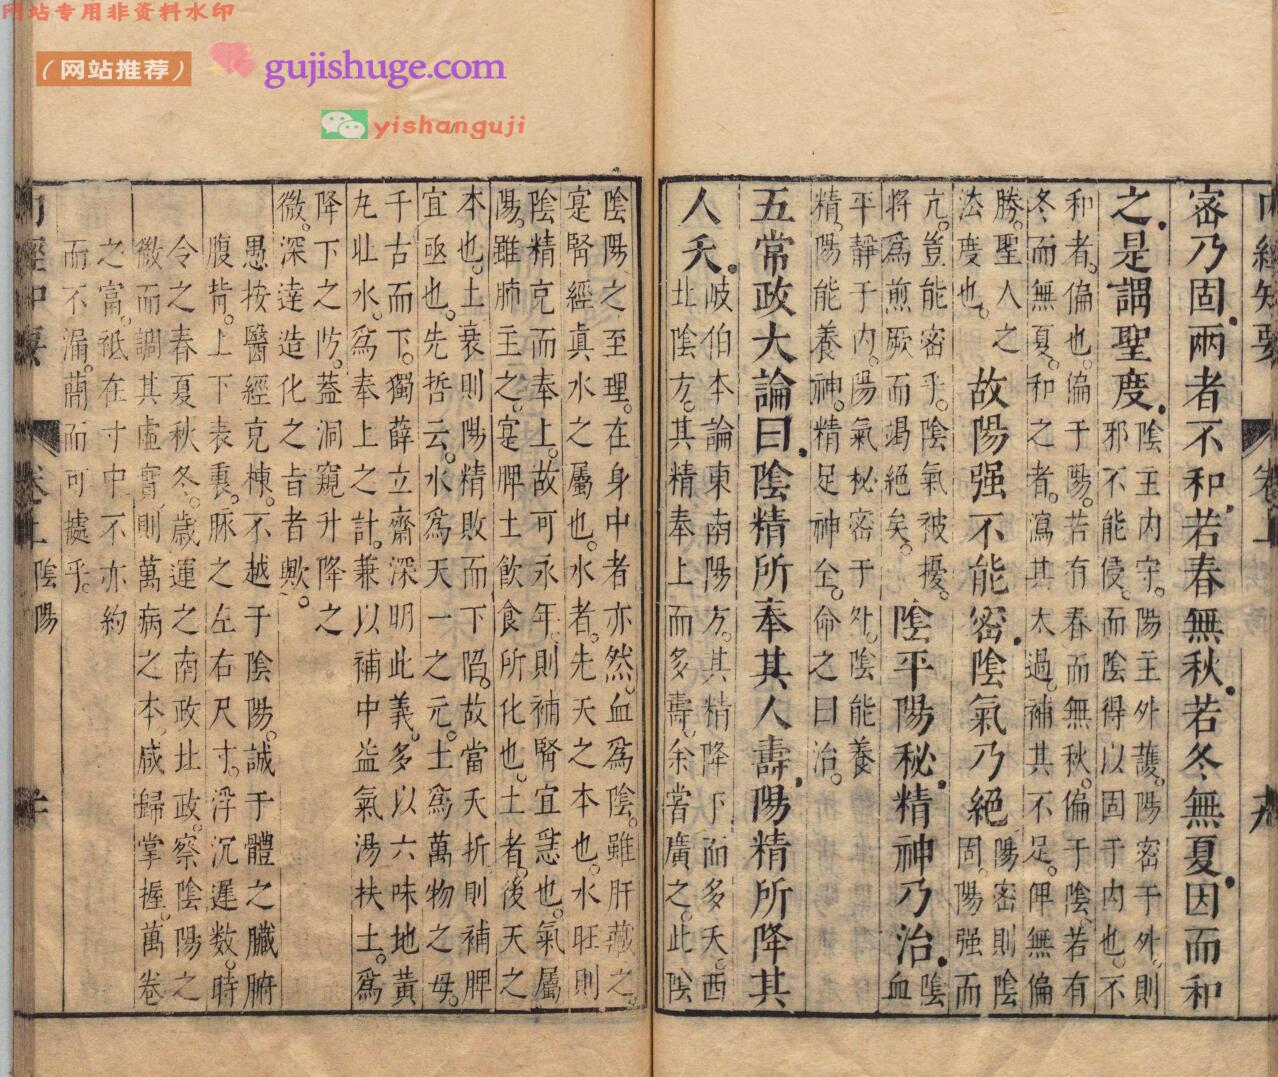 网站专用非资料水印
（网站推荐）
gujishuge.com
yishanguji
內經知要
卷上
密乃固兩者不和若春無秋若冬無夏因而和
之是謂聖度
陰主內守陽主外護陽密于外則
邪不能侵而陰得以固于內也不
和者偏也偏于陽若有春而無秋偏于陰若有
冬而無夏和之者瀉其太過補其不足俾無偏
勝聖人之
法度也
故陽强不能密陰氣乃絕
陽密則陰
固陽强而
亢豈能密乎陰氣被擾
將爲煎厥而竭絕矣
陰平陽秘精神乃治
陰
血
平靜于內陽氣秘密于外陰能養
精陽能養神精足神全命之曰治
五常政大論曰陰精所奉其人壽陽精所降其
人夭
岐伯本論東南陽方其精降下而多夭西
北陰方其精奉上而多壽余嘗廣之此陰
陰陽之至理在身中者亦然血爲陰雖肝藏之
寔腎經眞水之屬也水者先天之本也水旺則
陰精充而奉上故可永年則補腎宜急也氣屬
陽雖肺主之寔脾土飲食所化也土者後天之
本也土衰則陽精敗而下陷故當夭折則補脾
宜亟也先哲云水爲天一之元土爲萬物之母
千古而下獨薛立齋深明此義多以六味地黃
丸壯水爲奉上之計兼以補中益氣湯扶土爲
降下之防蓋洞窺升降之
微深達造化之旨者歟
愚按醫經充棟不越于陰陽誠于體之臟腑
腹背上下表裏脉之左右尺寸浮沉遲數時
令之春夏秋冬歲運之南政北政察陰陽之
微而調其虛實則萬病之本咸歸掌握萬卷
之富祗在寸中不亦約
而不漏簡而可據乎
卷上
陰陽